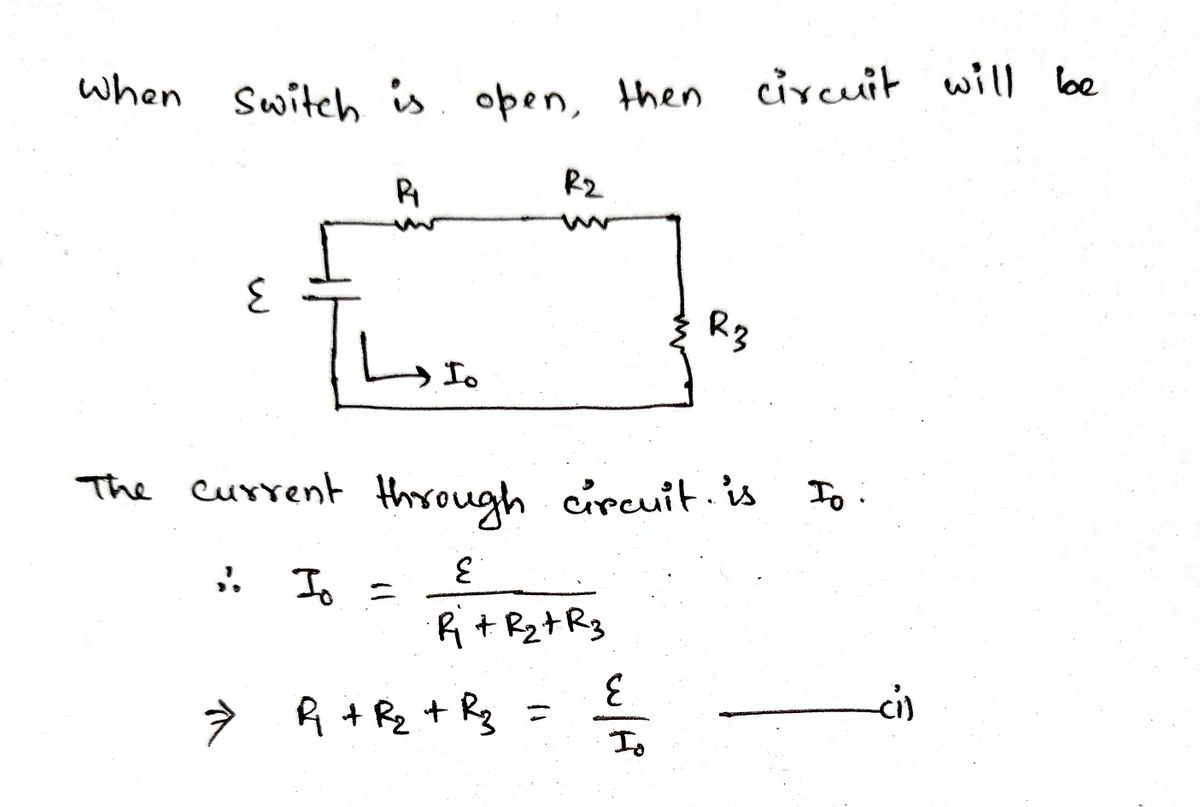 When switch is open, then circuit will be
R1 R2
ε
R3
I0
The current through circuit is I0.
∴ I0 = ε / R1 + R2 + R3
⇒ R1 + R2 + R3 = ε / I0 ——— (i)